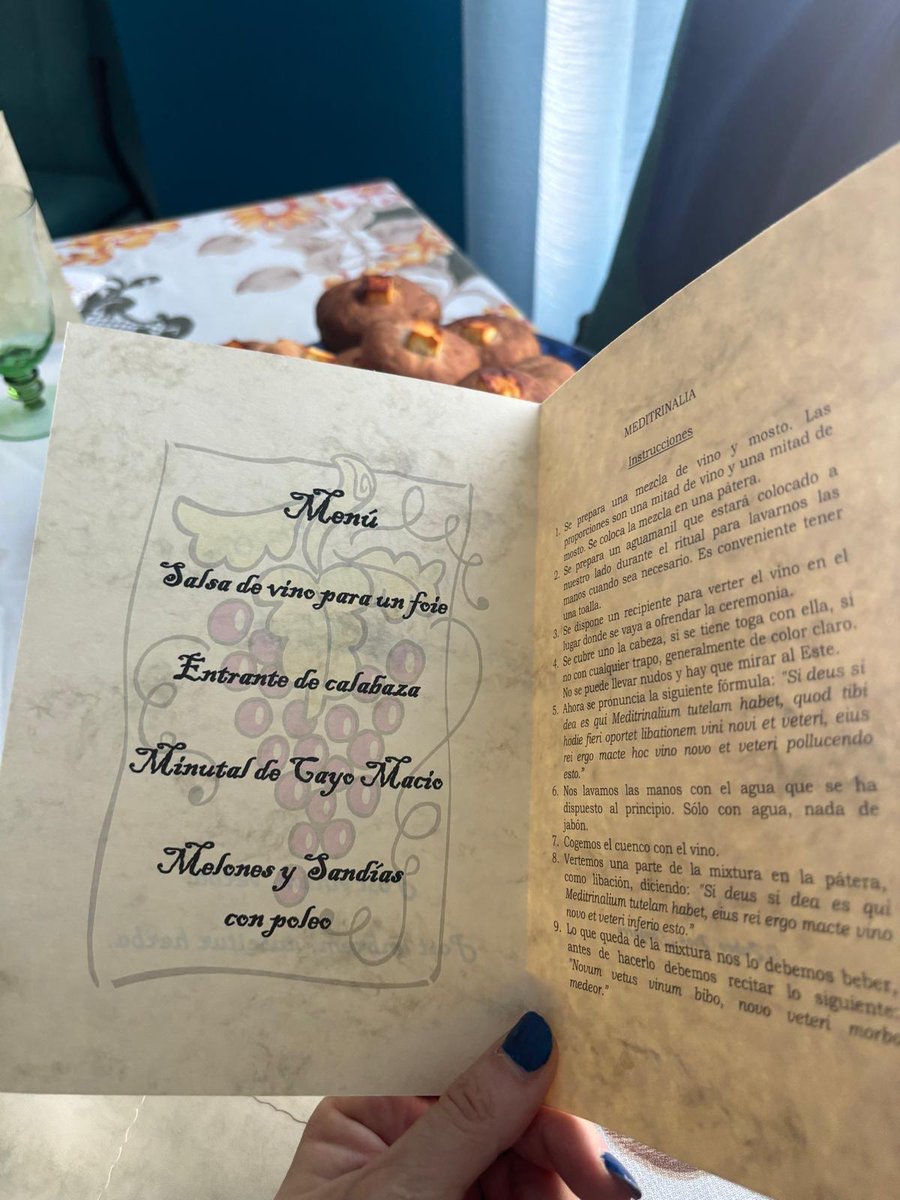 Menú
Salsa de vino para un foie
Entrante de calabaza
Minutal de Cayo Macio
Melones y Sandías
con poleo
MEDITRINALIA
Instrucciones
1. Se prepara una mezcla de vino y mosto. Las
proporciones son una mitad de vino y una mitad de
mosto. Se coloca la mezcla en una pátera.
2. Se prepara un aguamanil que estará colocado a
nuestro lado durante el ritual para lavarnos las
manos cuando sea necesario. Es conveniente tener
una toalla.
3. Se dispone un recipiente para verter el vino en el
lugar donde se vaya a ofrendar la ceremonia.
4. Se cubre uno la cabeza, si se tiene toga con ella, si
no con cualquier trapo, generalmente de color claro.
No se puede llevar nudos y hay que mirar al Este.
5. Ahora se pronuncia la siguiente fórmula: "Si deus si
dea es qui Meditrinalium tutelam habet, quod tibi
hodie fieri oportet libationem vini novi et veteri, eius
rei ergo macte hoc vino novo et veteri pollucendo
esto."
6. Nos lavamos las manos con el agua que se ha
dispuesto al principio. Sólo con agua, nada de
jabón.
7. Cogemos el cuenco con el vino.
8. Vertemos una parte de la mixtura en la pátera,
como libación, diciendo: "Si deus si dea es qui
Meditrinalium tutelam habet, eius rei ergo macte vino
novo et veteri inferio esto."
9. Lo que queda de la mixtura nos lo debemos beber,
antes de hacerlo debemos recitar lo siguiente:
"Novum vetus vinum bibo, novo veteri morbo
medeor."